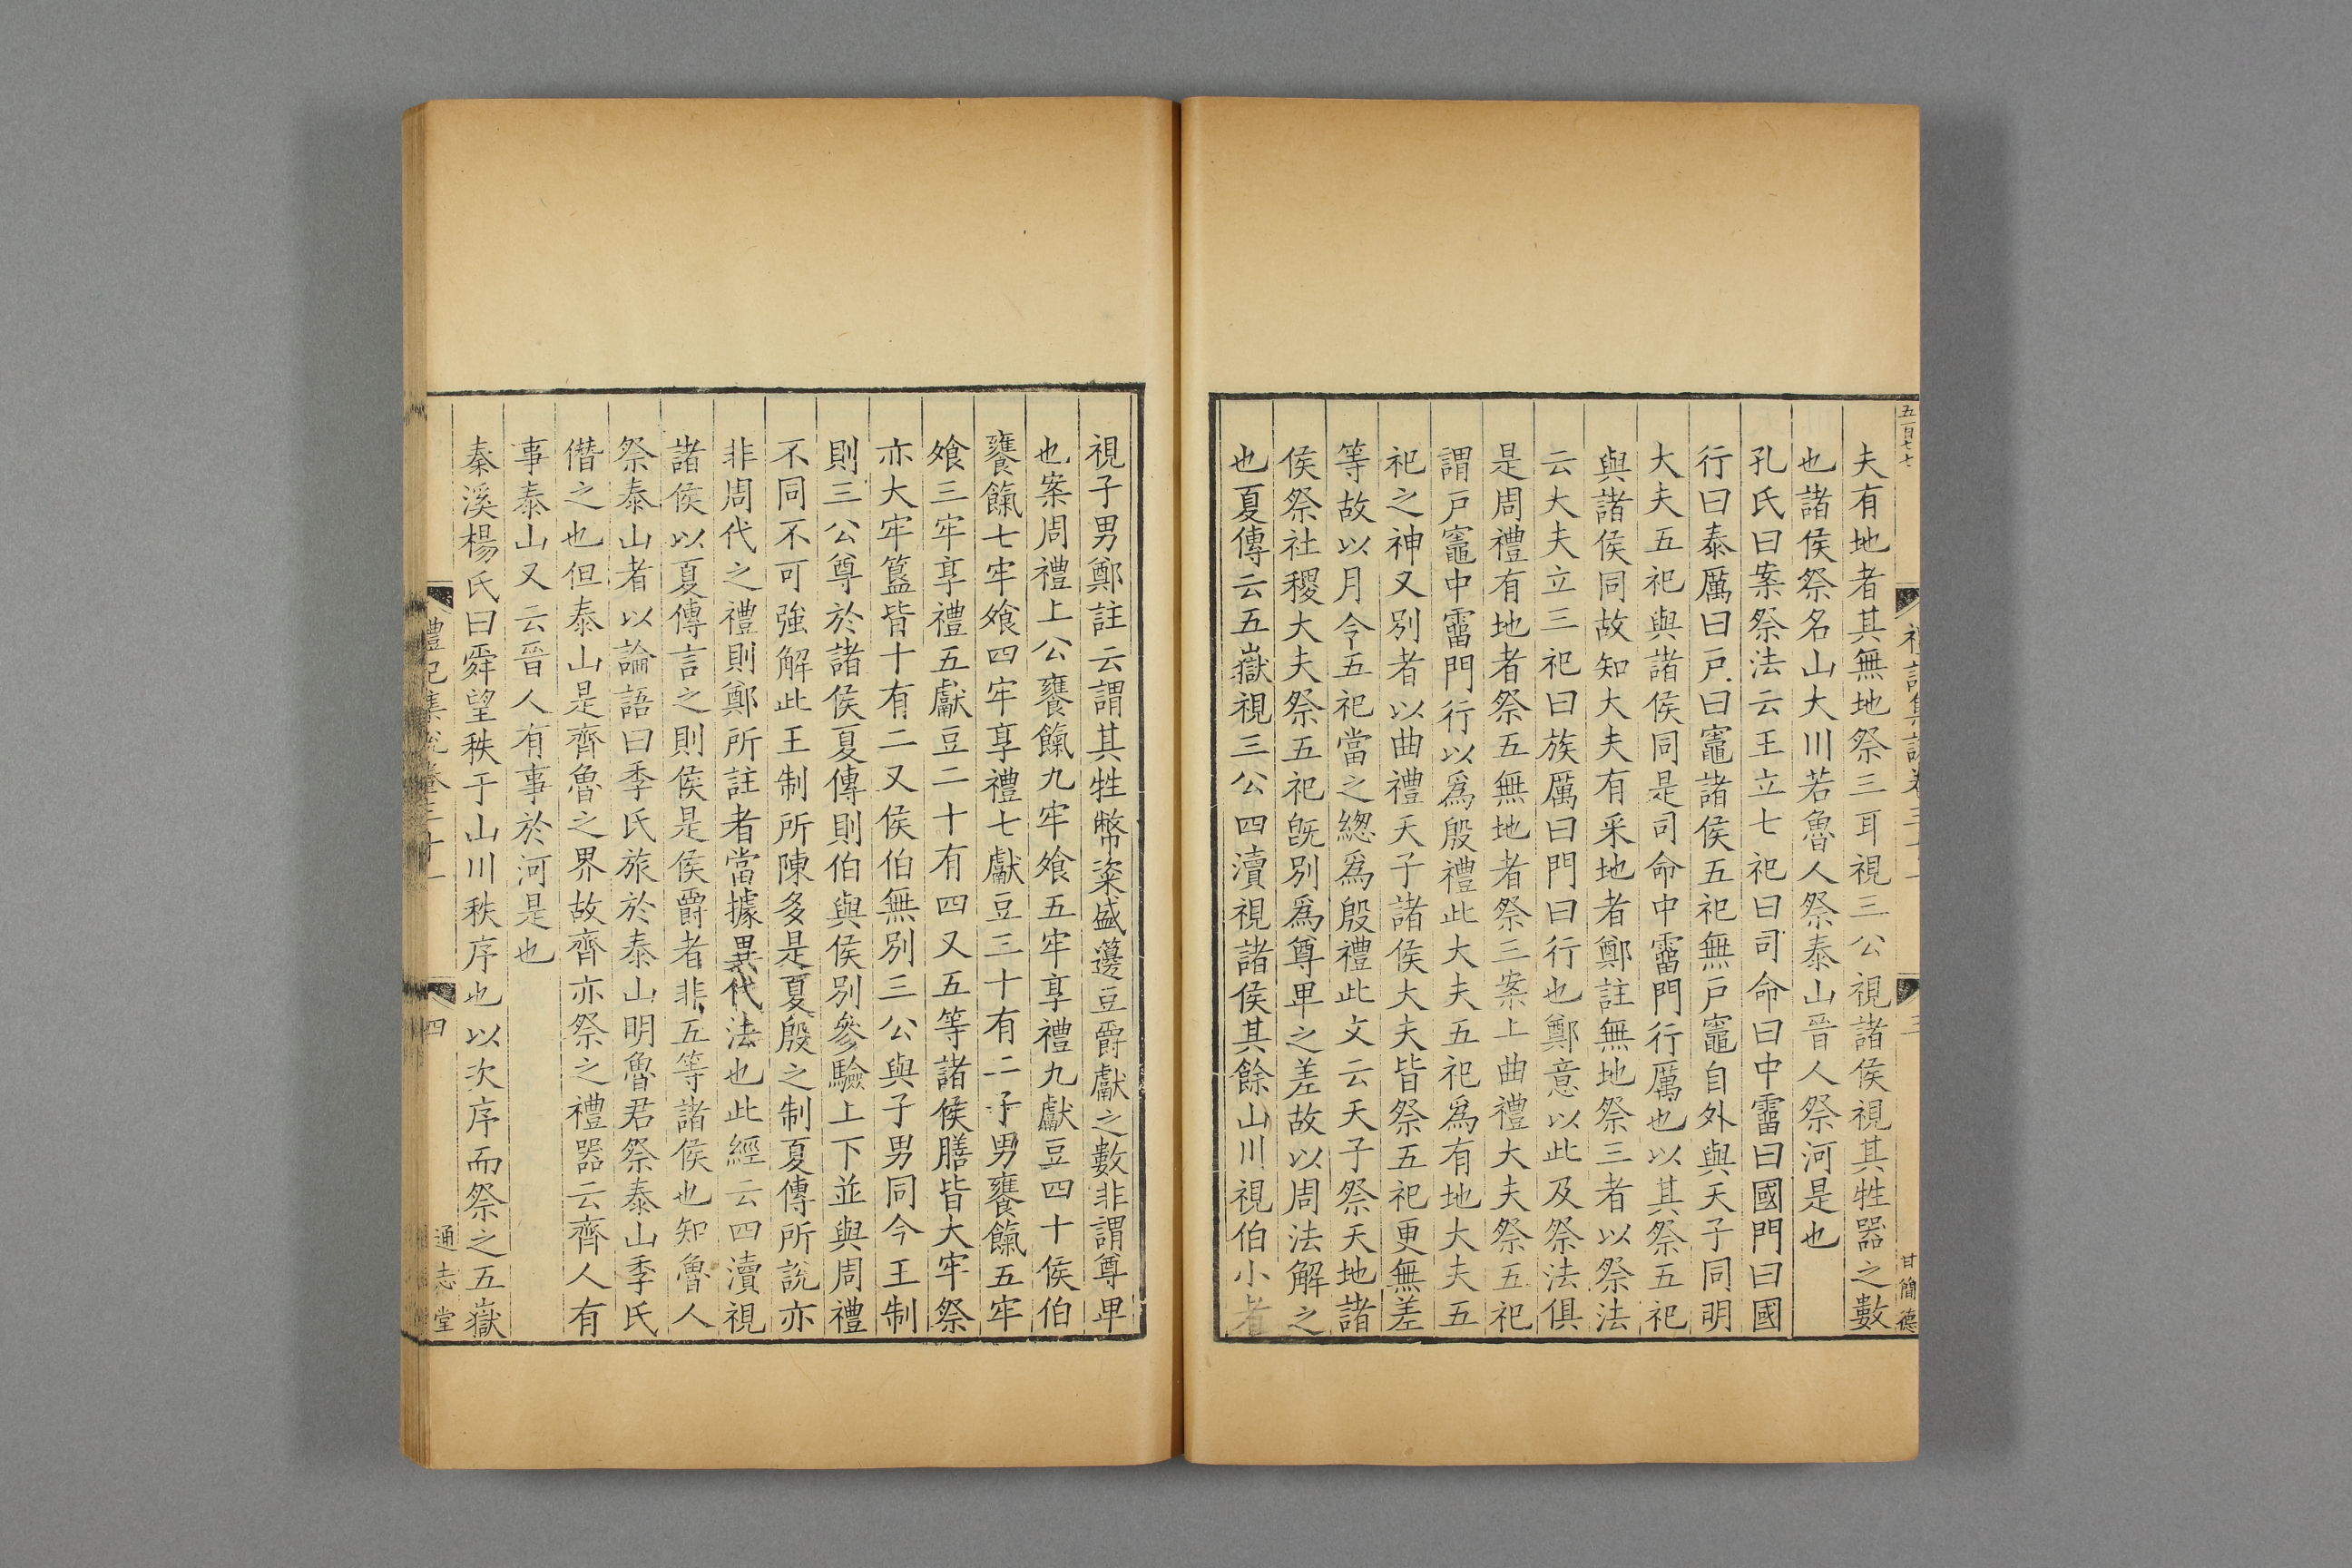 五百七七
禮記集說卷三十一
三
甘簡德
夫有地者其無地祭三耳視三公視諸侯視其牲器之數
也諸侯祭名山大川若魯人祭泰山晉人祭河是也
孔氏曰案祭法云王立七祀曰司命曰中霤曰國門曰國
行曰泰厲曰戸曰竈諸侯五祀無戸竈自外與天子同明
大夫五祀與諸侯同是司命中霤門行厲也以其祭五祀
與諸侯同故知大夫有采地者鄭註無地祭三者以祭法
云大夫立三祀曰族厲曰門曰行也鄭意以此及祭法俱
是周禮有地者祭五無地者祭三案上曲禮大夫祭五祀
謂戸竈中霤門行以爲殷禮此大夫五祀爲有地大夫五
祀之神又別者以曲禮天子諸侯大夫皆祭五祀更無差
等故以月令五祀當之緫爲殷禮此文云天子祭天地諸
侯祭社稷大夫祭五祀旣別爲尊卑之差故以周法解之
也夏傳云五嶽視三公四瀆視諸侯其餘山川視伯小者
視子男鄭註云謂其牲幣粢盛籩豆爵獻之數非謂尊卑
也案周禮上公饔餼九牢飧五牢享禮九獻豆四十侯伯
饔餼七牢飧四牢享禮七獻豆三十有二子男饔餼五牢
飧三牢享禮五獻豆二十有四又五等諸侯膳皆大牢祭
亦大牢簋皆十有二又侯伯無別三公與子男同今王制
則三公尊於諸侯夏傳則伯與侯別參驗上下並與周禮
不同不可強解此王制所陳多是夏殷之制夏傳所說亦
非周代之禮則鄭所註者當據異代法也此經云四瀆視
諸侯以夏傳言之則侯是侯爵者非五等諸侯也知魯人
祭泰山者以論語曰季氏旅於泰山明魯君祭泰山季氏
僭之也但泰山是齊魯之界故齊亦祭之禮器云齊人有
事泰山又云晉人有事於河是也
秦溪楊氏曰舜望秩于山川秩序也以次序而祭之五嶽
禮記集說卷三十一
四
通志堂